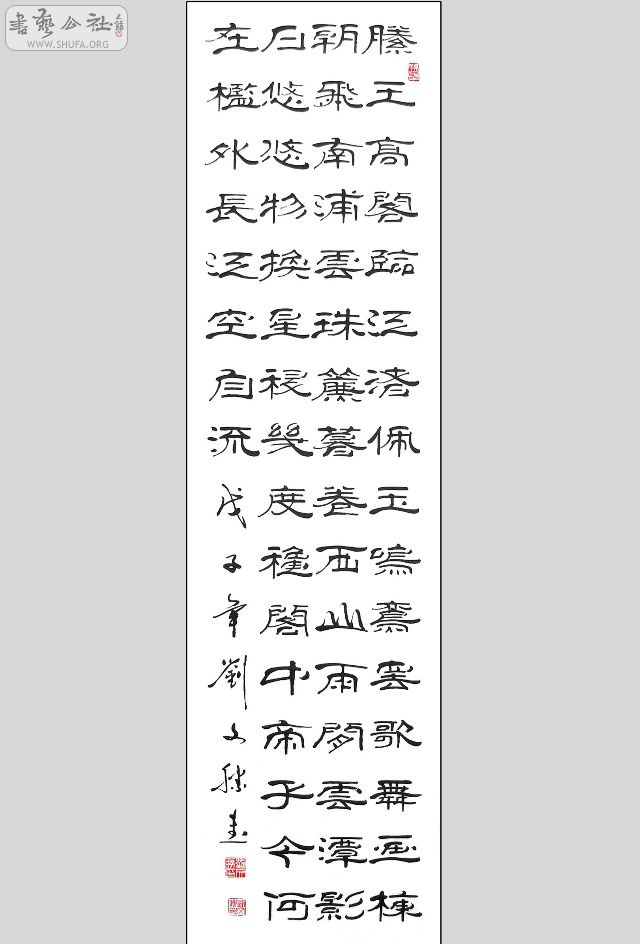 滕王高閣臨江渚佩玉鳴鸞罷歌舞画棟
朝飛南浦雲珠簾暮卷西山雨閒雲潭影
日悠悠物換星移幾度穐閣中帝子今何
在檻外長江空自流戊子年劉文勝書
書藝公社
WWW.SHUFA.ORG